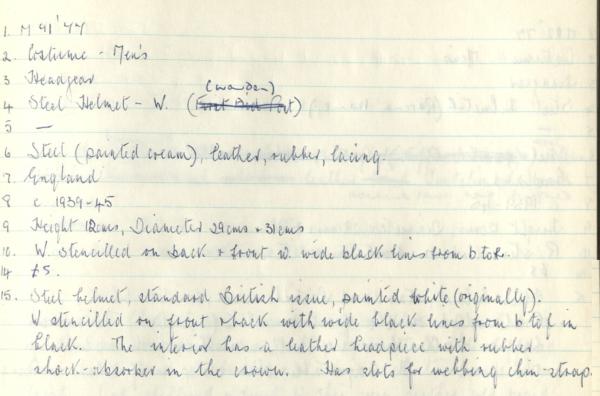 1. M 91'77
2. Costume - Men's
3 Headgear
(warden)
4 Steel Helmet - W. (First Aid Post)
5 —
6 Steel (painted cream), leather, rubber, lacing.
7 England
8 c 1939-45
9 Height 12cms, Diameter 29cms × 31cms
10. W. stencilled on back + front w. wide black lines from b to f.
14 £5.
15. Steel helmet, standard British issue, painted white (originally).
W stencilled on front + back with wide black lines from b to f in
black. The interior has a leather headpiece with rubber
shock-absorber in the crown. Has slots for webbing chin-strap.